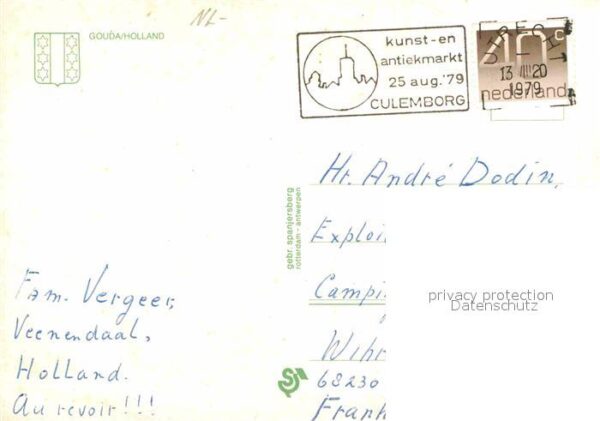 NL-
GOUDA/HOLLAND
kunst-en
antiekmarkt
25 aug.'79
CULEMBORG
40c
13 VIII 20
1979
nederland
gebr. spanjersberg
rotterdam - antwerpen
Hr. André Dodin,
Exploi
Campi
Wihr
68230
Frank
privacy protection
Datenschutz
Fam. Vergeer,
Veenendaal,
Holland.
Au revoir!!!